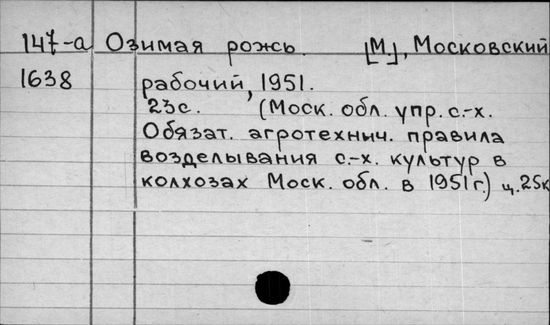 147-а Озимая рожь. [М.], Московский
1638 рабочий, 1951.
23с. (Моск. обл. упр. с.-х.
Обязат. агротехнич. правила
возделывания с.-х. культур в
колхозах Моск. обл. в 1951г.) ц. 25к